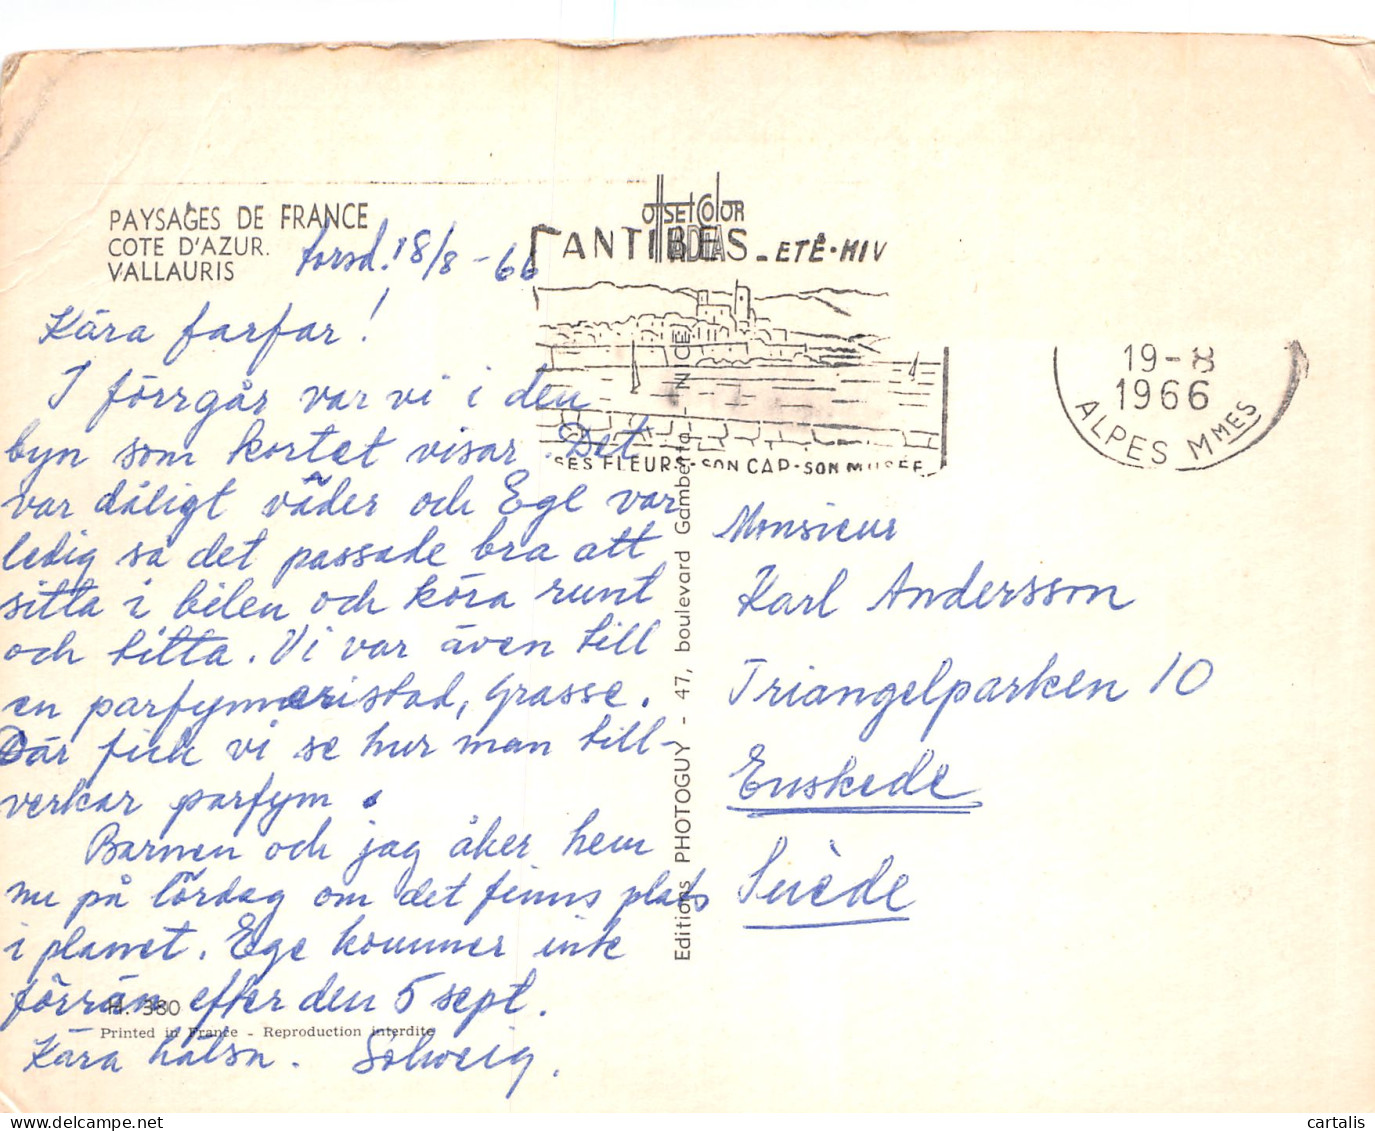 PAYSAGES DE FRANCE
COTE D'AZUR.
VALLAURIS
torsd. 18/8 - 66
Kära farfar!
I förrgår var vi i den
byn som kortet visar. Det
var dåligt väder och Ege var
ledig så det passade bra att
sitta i bilen och köra runt
och titta. Vi var även till
en parfymeristad, Grasse.
Där fick vi se hur man till-
verkar parfym.
Barnen och jag åker hem
nu på lördag om det finns plats
i planet. Ege kommer inte
förrän efter den 5 sept.
H. 380
Printed in France - Reproduction interdite
Kära hälsn. Solweig.
OFFSET COLOR
ANTIBES - ETÉ-HIV
SES FLEURS-SON CAP-SON MUSÉE
Editions PHOTOGUY - 47, boulevard Gambetta - NICE
19-8
1966
ALPES MMES
Monsieur
Karl Andersson
Triangelparken 10
Enskede
Suède
cartalis